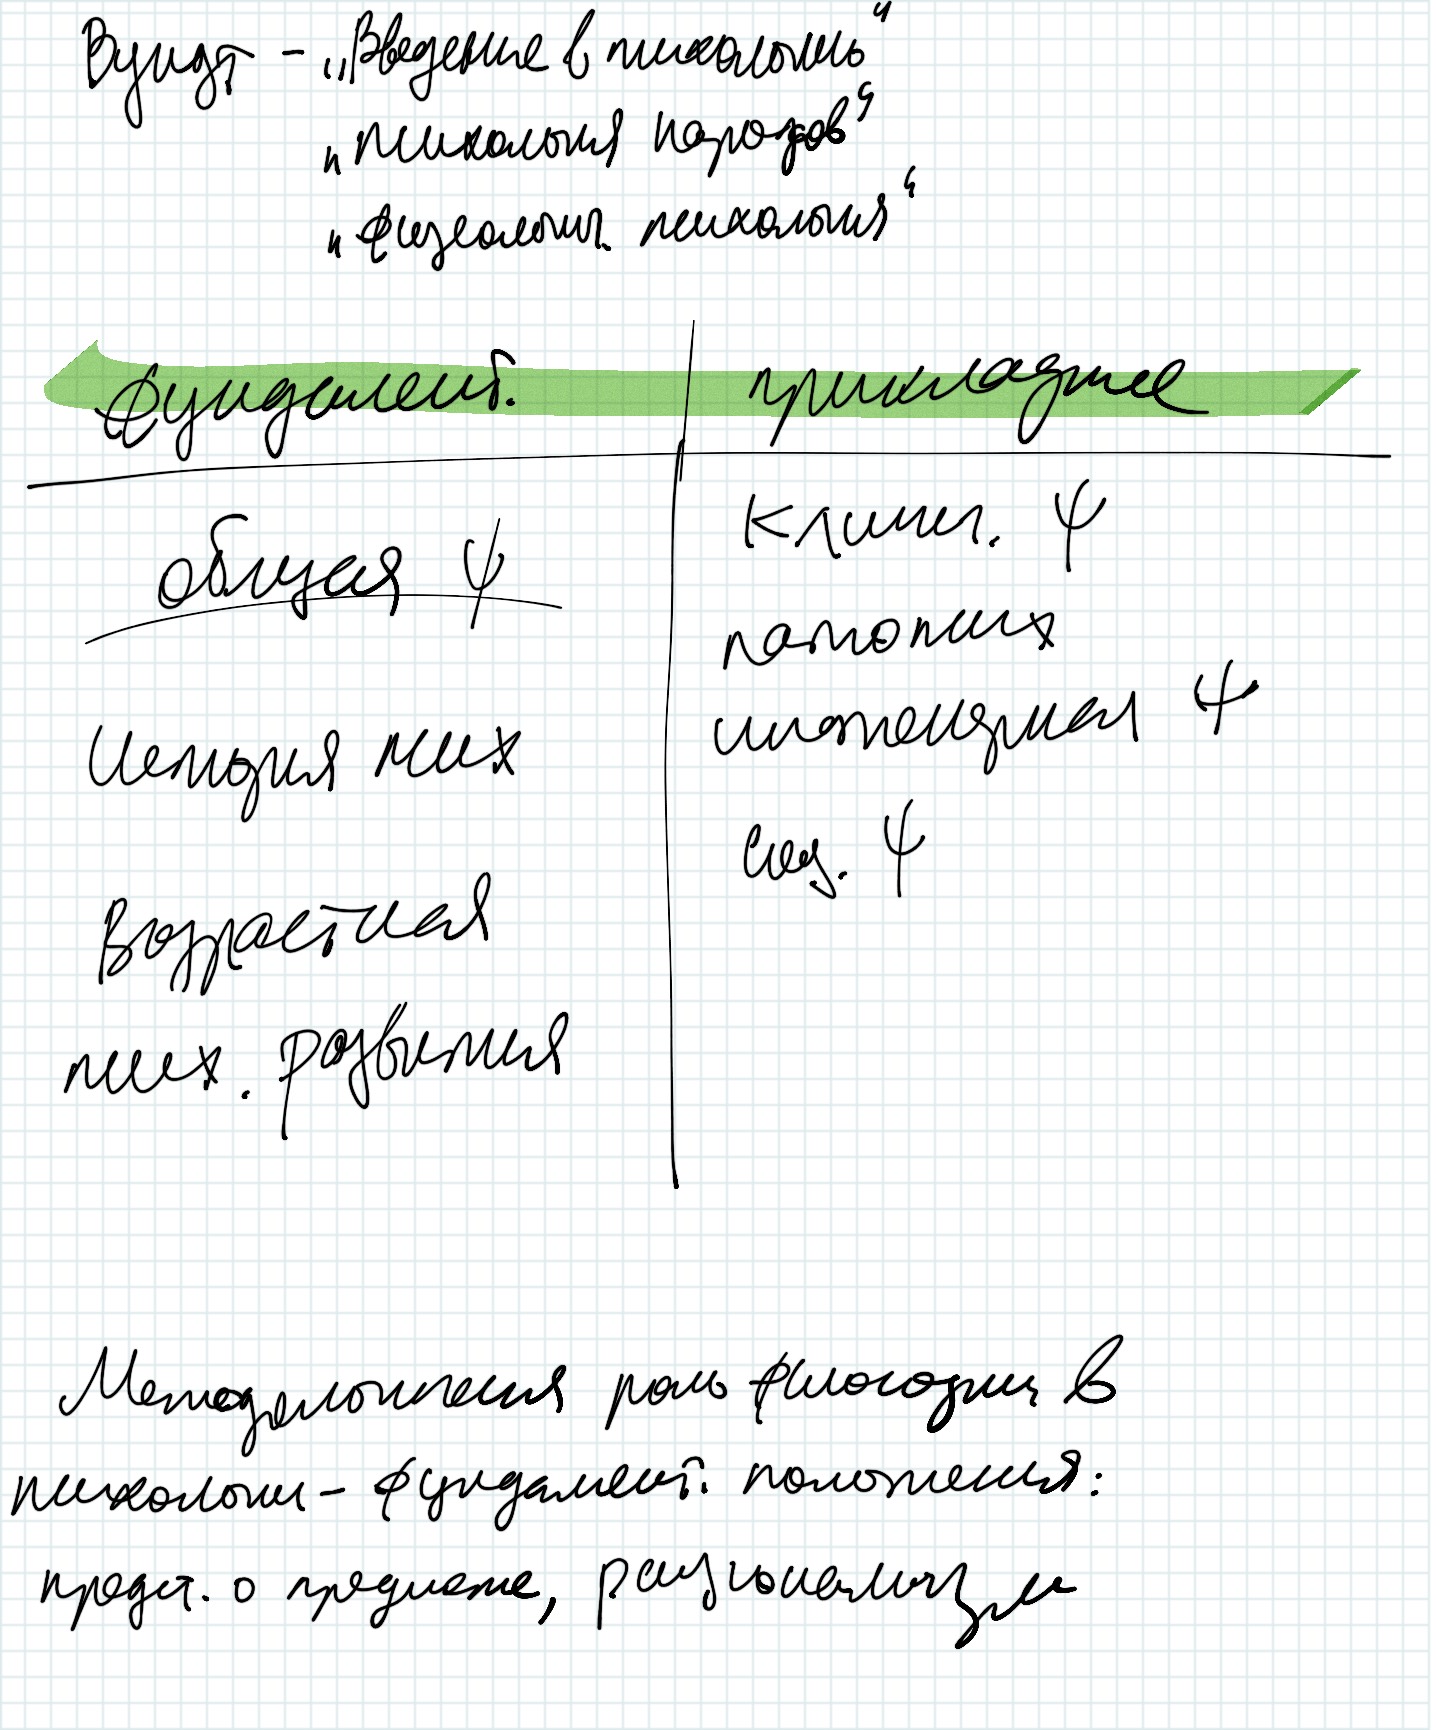 Вундт - „Введение в психологию“
„Психология народов“
„Физеологич. психология“
фундамент.
прикладные
общая ψ
История псих
Возрастная
псих. развития
Клинич. ψ
патопсих
инженерная ψ
соц. ψ
Методологическая роль философии в
психологии - фундамент. положения:
предст. о предмете, рационализм